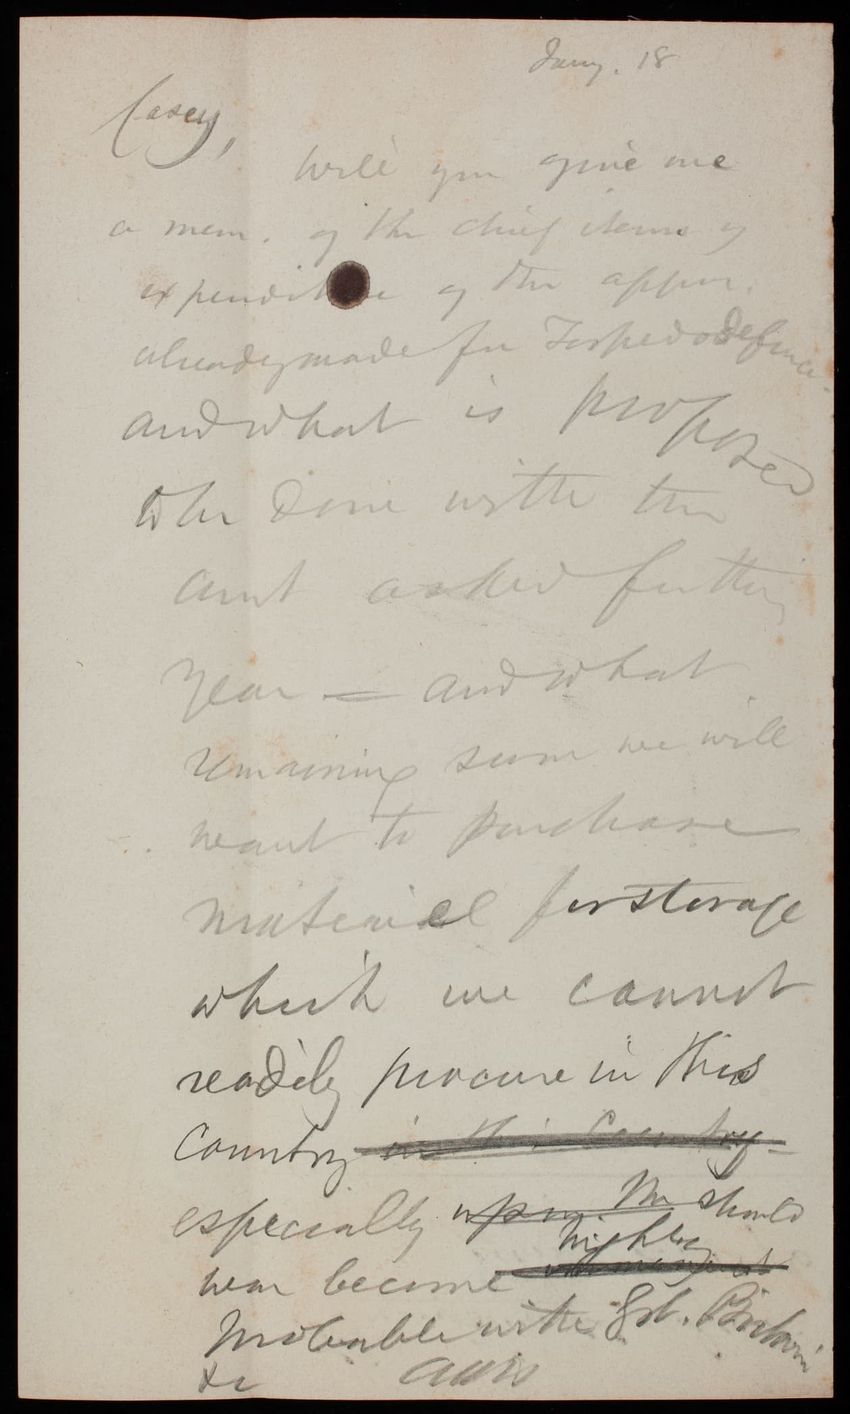 Jany. 18
Casey,
Will you give me
a mem. of the chief items of
expenditure of the appro.
already made for Torpedo defence
and what is proposed
to be done with the
amt asked for this
year — and what
remaining sum we will
want to purchase
material for storage
which we cannot
readily procure in this
country in this Country
especially upon the should
highly
war become
probable with Gt. Britain
&c